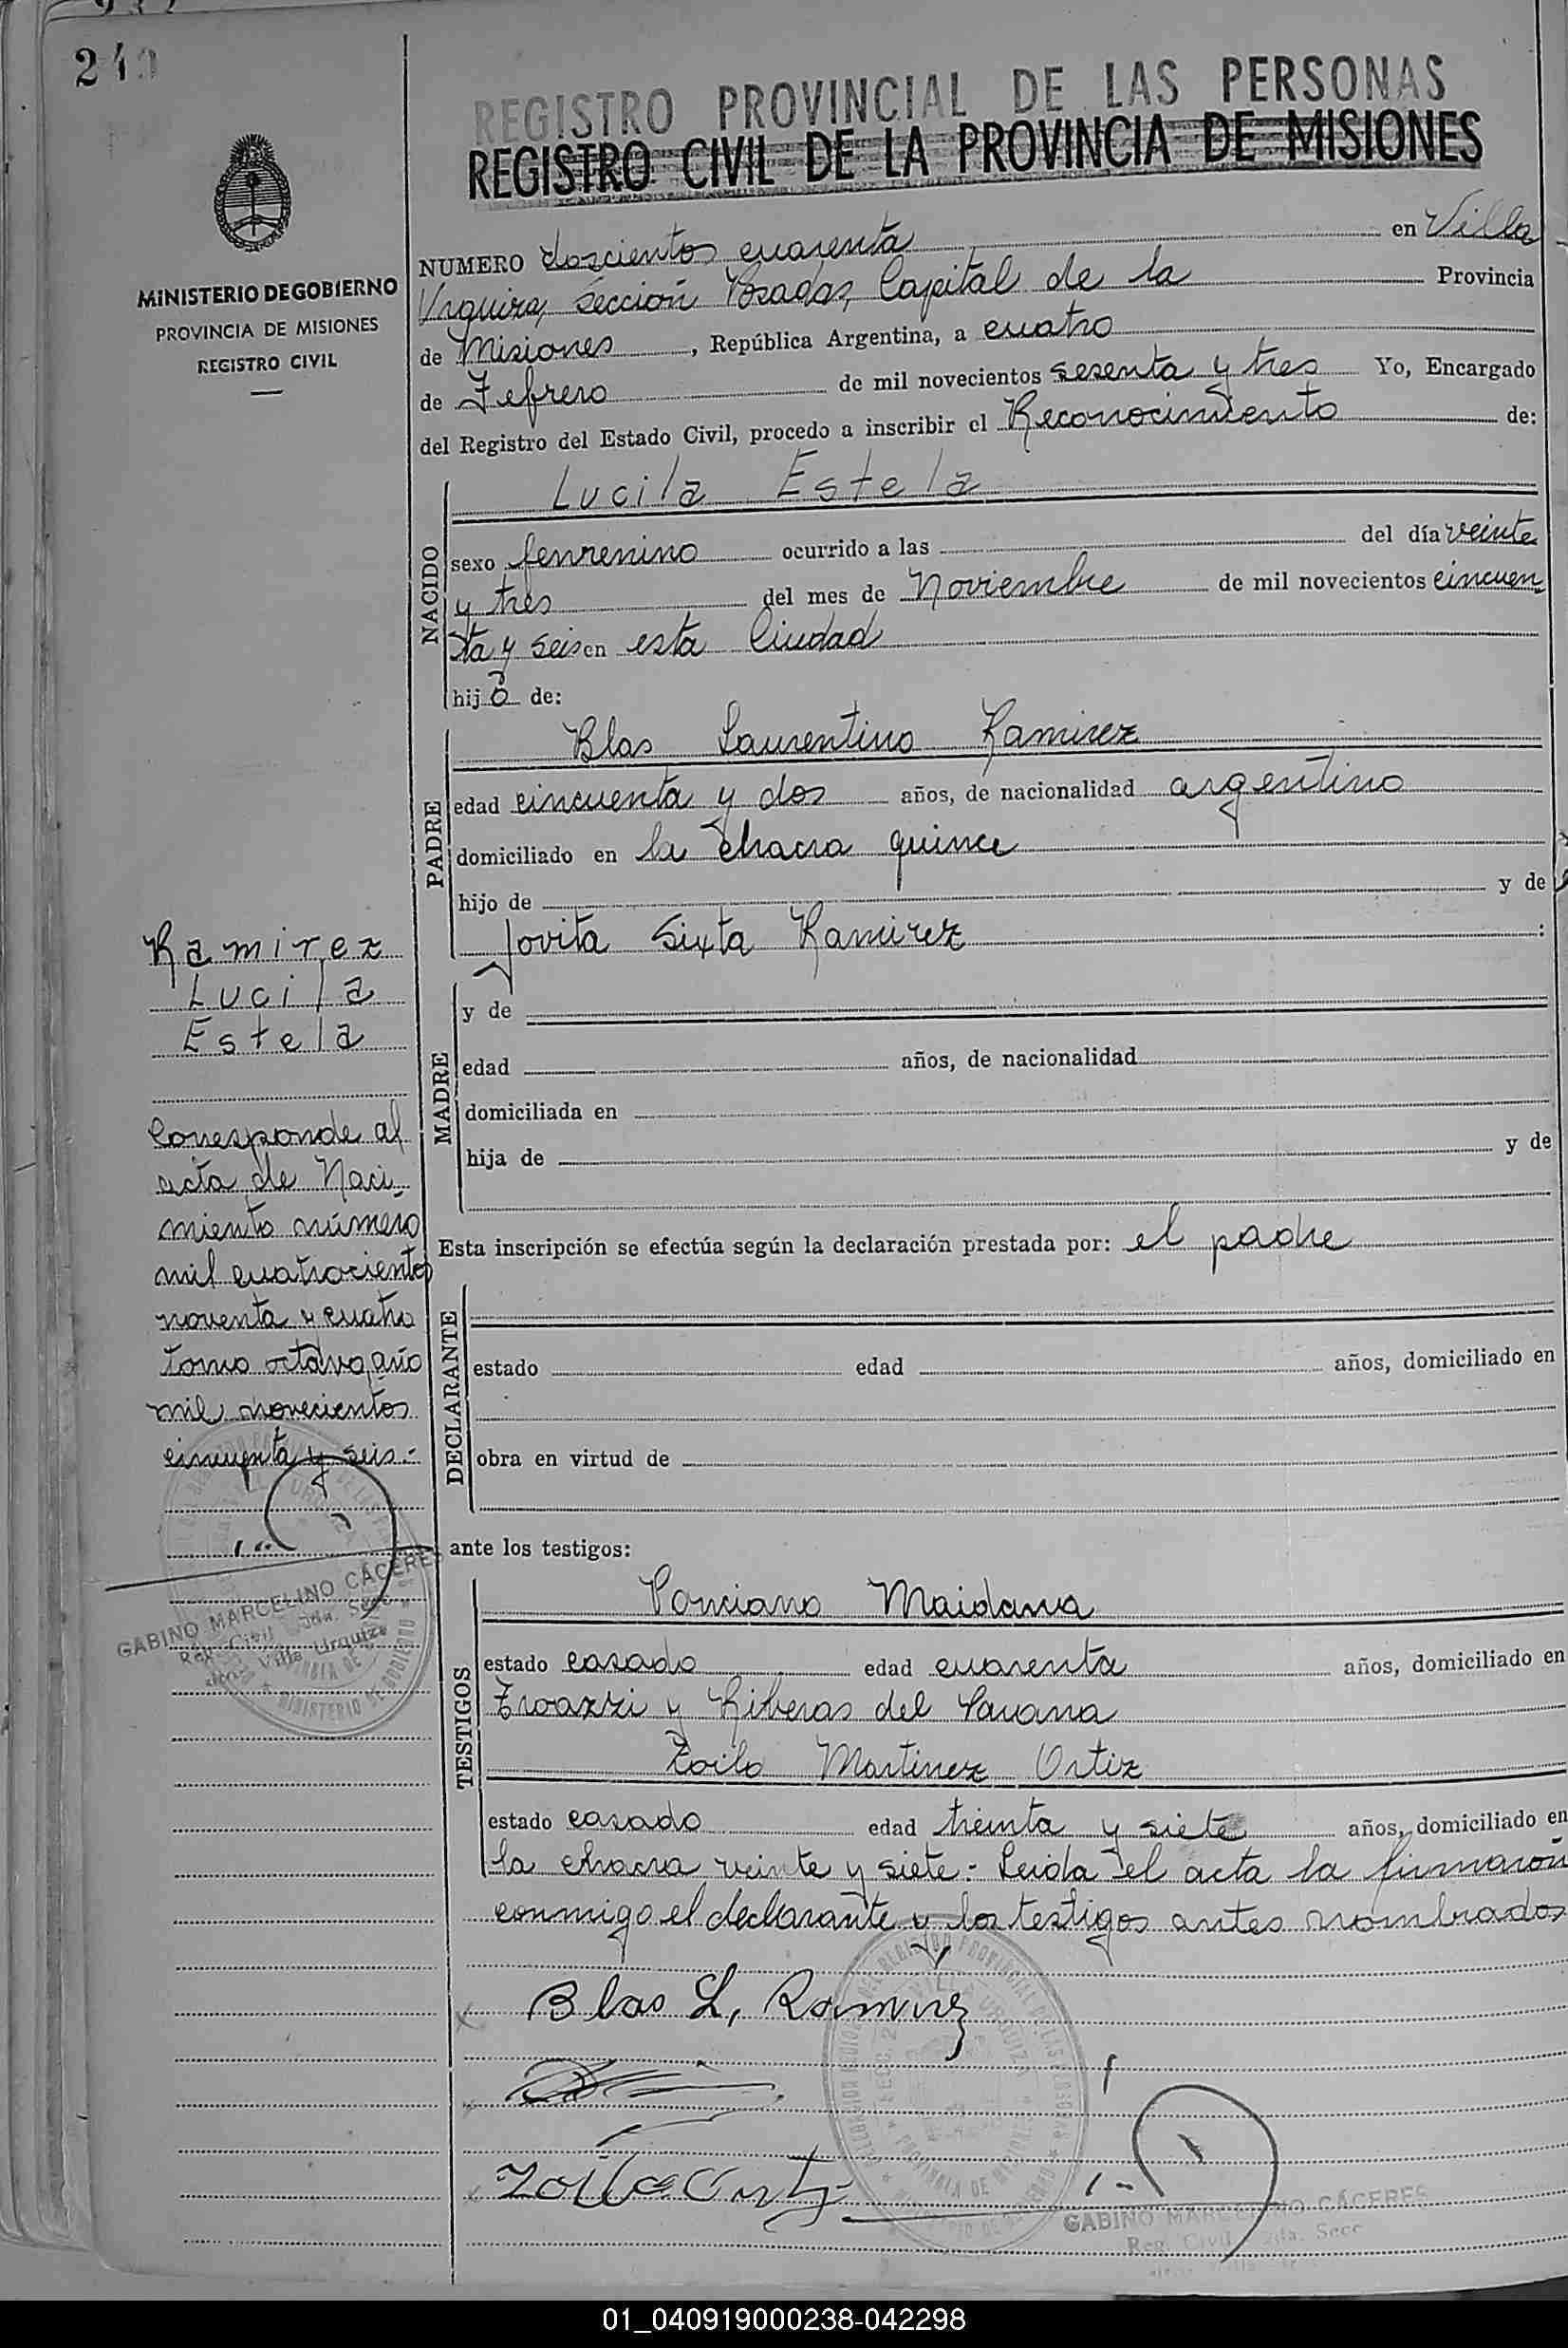 240
REGISTRO PROVINCIAL DE LAS PERSONAS
REGISTRO CIVIL DE LA PROVINCIA DE MISIONES
MINISTERIO DE GOBIERNO
PROVINCIA DE MISIONES
REGISTRO CIVIL
NUMERO doscientos cuarenta en Villa
Urquiza, Sección Posadas, Capital de la Provincia
de Misiones, República Argentina, a cuatro
de Febrero de mil novecientos sesenta y tres Yo, Encargado
del Registro del Estado Civil, procedo a inscribir el Reconocimiento de:
NACIDO
Lucila Estela
sexo femenino ocurrido a las del día veinte
y tres del mes de Noviembre de mil novecientos cincuen
ta y seis en esta Ciudad
hija de:
PADRE
Blas Laurentino Ramirez
edad cincuenta y dos años, de nacionalidad argentino
domiciliado en la chacra quince
hijo de y de
Jovita Sixta Ramirez :
MADRE
y de
edad años, de nacionalidad
domiciliada en
hija de y de
Esta inscripción se efectúa según la declaración prestada por: el padre
DECLARANTE
estado edad años, domiciliado en
obra en virtud de
ante los testigos:
TESTIGOS
Ponciano Maidana
estado casado edad cuarenta años, domiciliado en
y Riberas del Parana
Zoilo Martinez Ortiz
estado casado edad treinta y siete años, domiciliado en
la chacra veinte y siete.- Leida el acta la firmaron
conmigo el declarante y los testigos antes nombrados
Blas L. Ramirez
Zoilo Ortiz
GABINO MARCELINO CÁCERES
Reg. Civil 2da. Secc
Ramirez
Lucila
Estela
Corresponde al
acta de Naci-
miento número
mil cuatrocientos
noventa y cuatro
tomo octavo año
mil novecientos
cincuenta y seis.-
GABINO MARCELINO CÁCERES
Reg. Civil 2da. Secc
Villa Urquiza
01_040919000238-042298